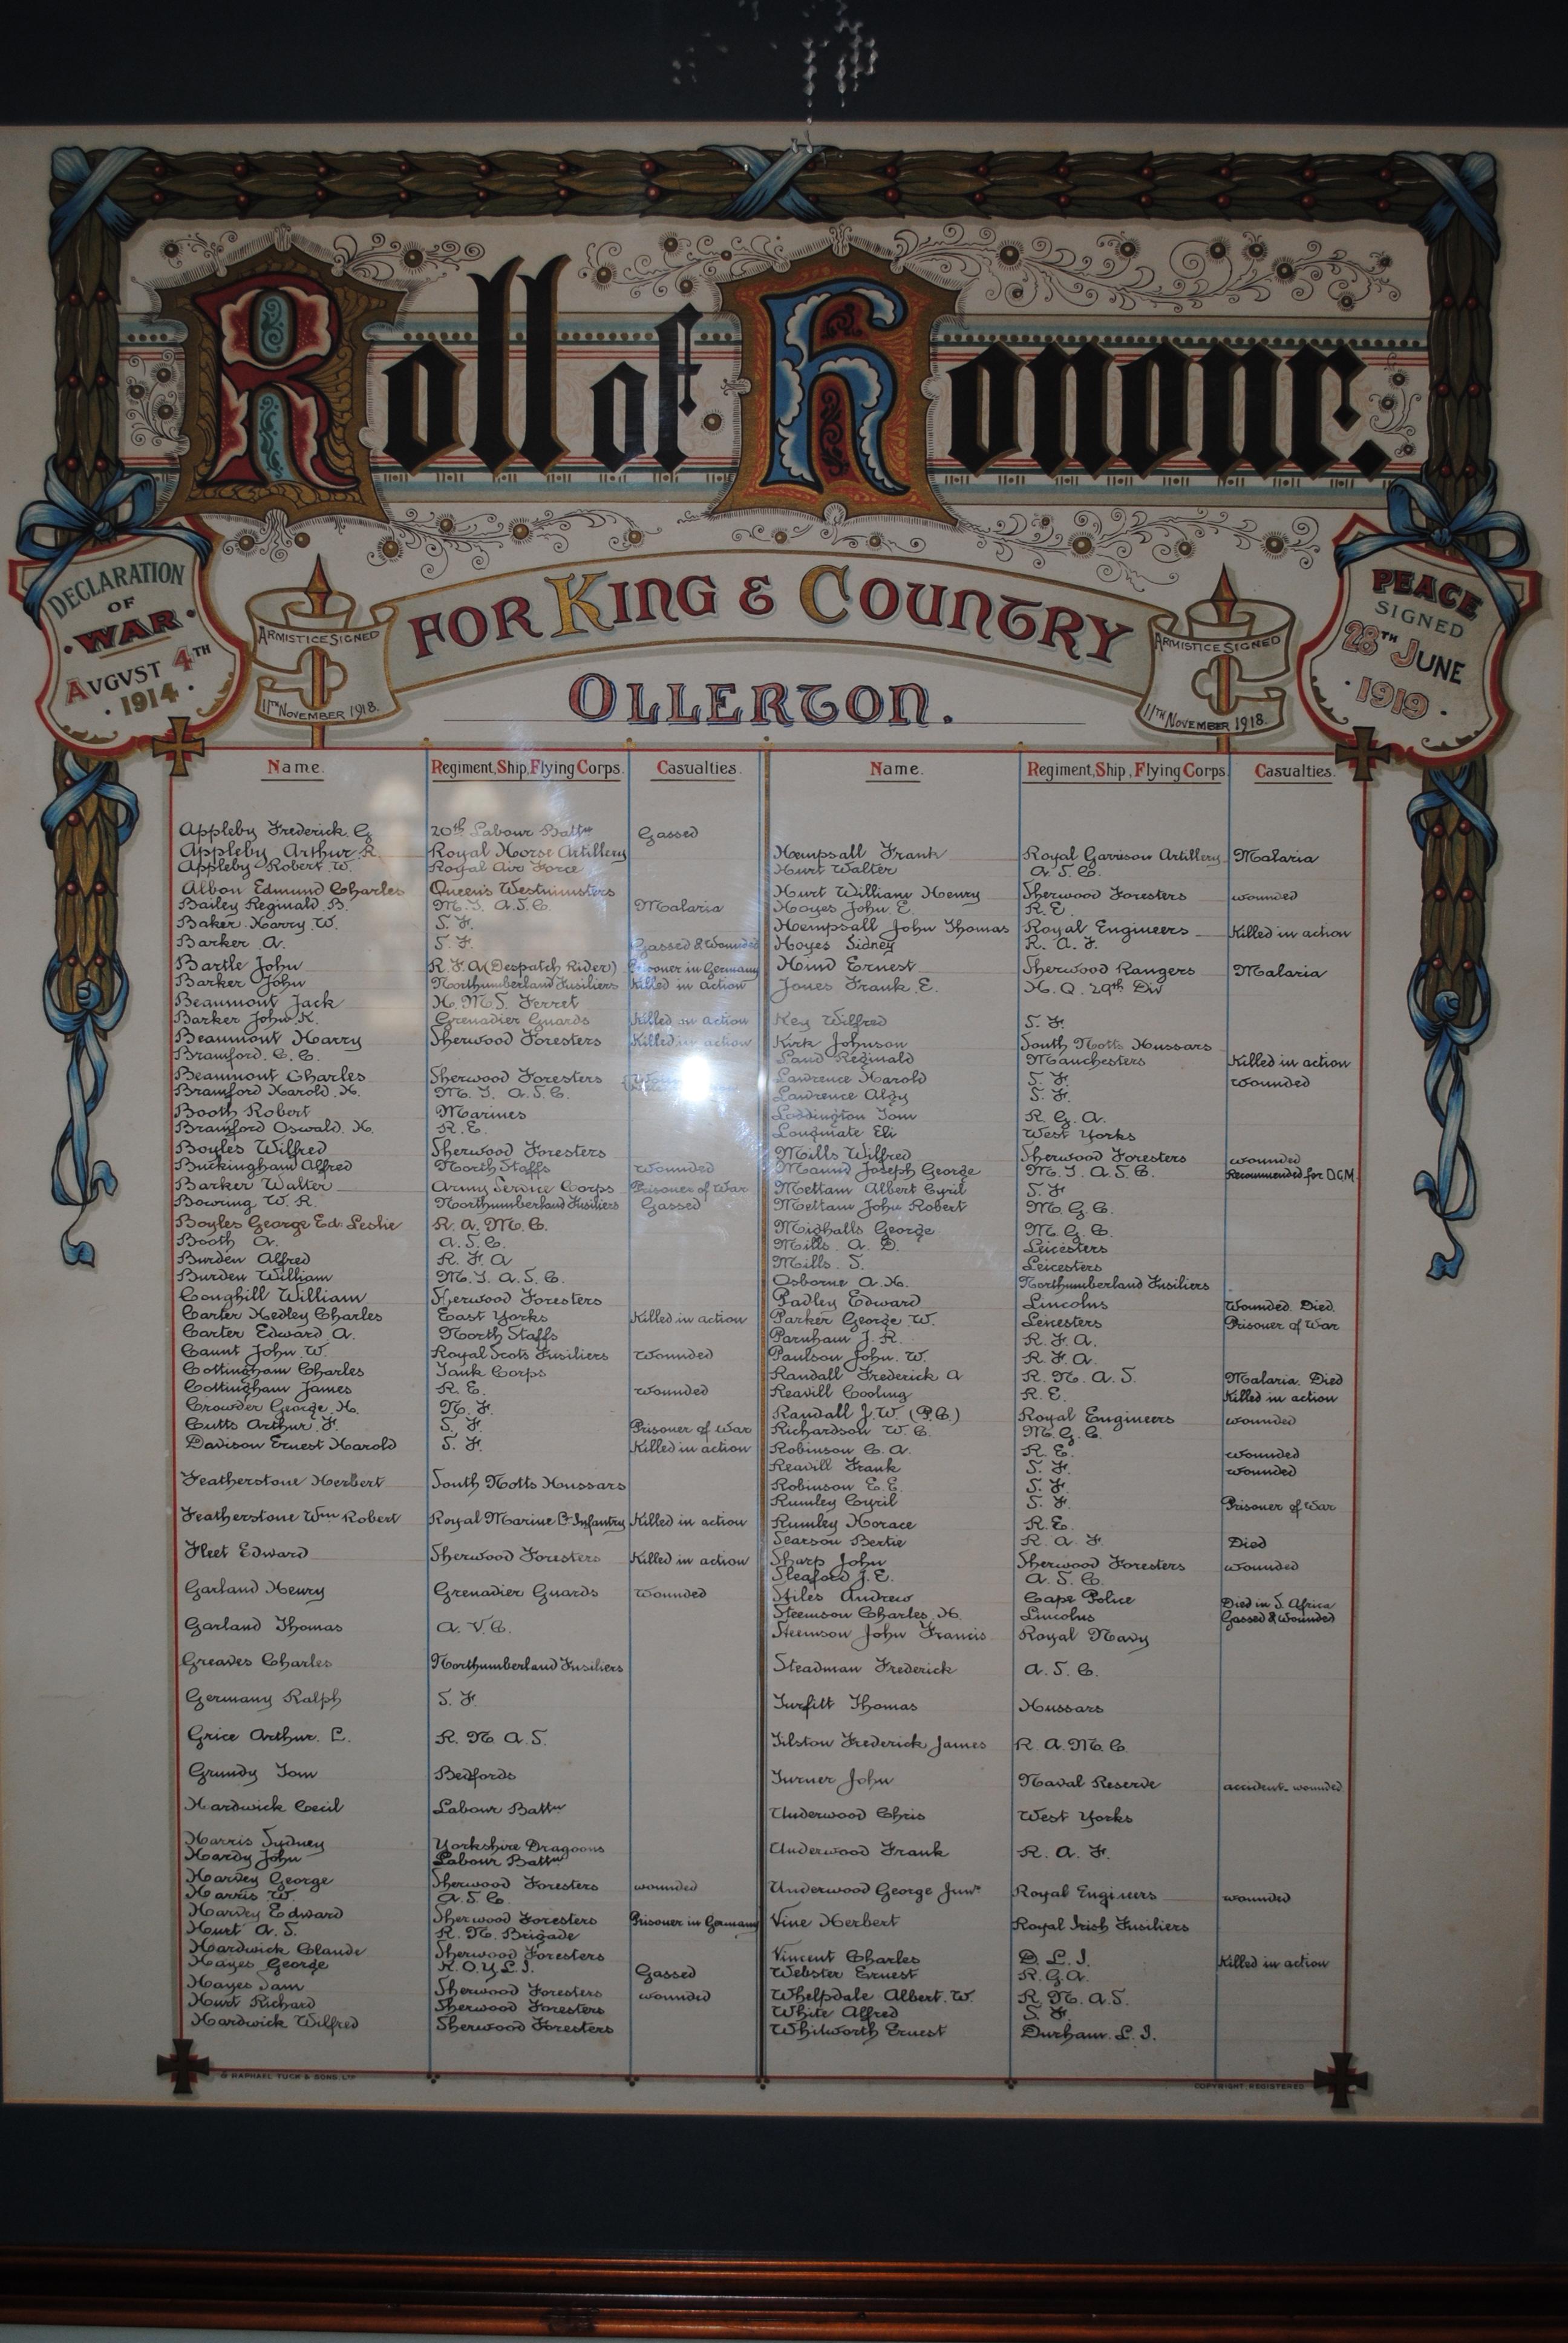 Roll of Honour.
DECLARATION
OF
WAR.
AVGVST 4TH
1914.
ARMISTICE SIGNED
11TH NOVEMBER 1918.
FOR KING & COUNTRY
ARMISTICE SIGNED
11TH NOVEMBER 1918.
PEACE
SIGNED
28TH JUNE
1919.
OLLERTON.
Name. Regiment, Ship, Flying Corps. Casualties.
Appleby Frederick. G 20th Labour Battn Gassed
Appleby Arthur. R. Royal Horse Artillery
Appleby Robert. W. Royal Air Force
Albon Edmund Charles Queen's Westminsters
Bailey Reginald. B. M. T. A.S.C. Malaria
Baker Harry W. S. F.
Barker A. S. F. Gassed & Wounded
Bartle John R. F. A (Despatch Rider) Prisoner in Germany
Barker John Northumberland Fusiliers Killed in action
Beaumont Jack H. M. S. Ferret
Barker John. K. Grenadier Guards Killed in action
Beaumont Harry Sherwood Foresters Killed in action
Bramford. C. C.
Beaumont Charles Sherwood Foresters
Bramford Harold. H. M. T. A. S. C.
Booth Robert Marines
Bramford Oswald. H. R. E.
Boyles Wilfred Sherwood Foresters
Buckingham Alfred North Staffs Wounded
Barker Walter Army Service Corps Prisoner of War
Bowring W. R. Northumberland Fusiliers Gassed
Boyles George Ed. Leslie R. A. M. C.
Booth A. A. S. C.
Burden Alfred R. F. A
Burden William M. T. A. S. C.
Coughill William Sherwood Foresters
Carter Hedley Charles East Yorks Killed in action
Carter Edward A. North Staffs
Caunt John W. Royal Scots Fusiliers Wounded
Cottingham Charles Tank Corps
Cottingham James R. E. Wounded
Crowder George. H. N. F.
Cutts Arthur. F. S. F. Prisoner of War
Davison Ernest Harold S. F. Killed in action
Featherstone Herbert South Notts Hussars
Featherstone Wm Robert Royal Marine Lt Infantry Killed in action
Fleet Edward Sherwood Foresters Killed in action
Garland Henry Grenadier Guards Wounded
Garland Thomas A. V. C.
Greaves Charles Northumberland Fusiliers
Germany Ralph S. F.
Grice Arthur. L. R. N. A. S.
Grundy Tom Bedfords
Hardwick Cecil Labour Battn
Harris Sydney Yorkshire Dragoons
Hardy John Labour Battn
Harvey George Sherwood Foresters wounded
Harris W. A. S. C.
Harvey Edward Sherwood Foresters Prisoner in Germany
Hurt A. S. R. N. Brigade
Hardwick Claude Sherwood Foresters
Hayes George K. O. Y. L. I. Gassed
Hayes Sam Sherwood Foresters wounded
Hurt Richard Sherwood Foresters
Hardwick Wilfred Sherwood Foresters
Name. Regiment, Ship, Flying Corps. Casualties.
Hempsall Frank Royal Garrison Artillery Malaria
Hurt Walter A. S. C.
Hurt William Henry Sherwood Foresters wounded
Hoyes John E. R. E.
Hempsall John Thomas Royal Engineers Killed in action
Hoyes Sidney R. A. F.
Hind Ernest Sherwood Rangers Malaria
Jones Frank. E. H. Q. 29th Div
Key Wilfred S. F.
Kirk Johnson South Notts Hussars
Land Reginald Manchesters Killed in action
Lawrence Harold S. F. Wounded
Lawrence Algy S. F.
Loddington Tom R. G. A.
Longmate Eli West Yorks
Mills Wilfred Sherwood Foresters wounded
Maund Joseph George M. T. A. S. C. Recommended for D.C.M.
Mettam Albert Cyril S. F
Mettam John Robert M. G. C.
Mighalls George M. G. C.
Mills. A. D. Leicesters
Mills. S. Leicesters
Osborne A. H. Northumberland Fusiliers
Padley Edward Lincolns Wounded. Died.
Parker George W. Leicesters Prisoner of War
Parnham J. R. R. F. A.
Paulson John. W. R. F. A.
Randall Frederick A R. N. A. S. Malaria. Died
Reavill Cooling R. E. Killed in action
Randall J. W. (P.C) Royal Engineers wounded
Richardson W. C. M. G. C.
Robinson C. A. R. E. wounded
Reavill Frank S. F. wounded
Robinson E. E. S. F.
Rumley Cyril S. F. Prisoner of War
Rumley Horace R. E.
Searson Bertie R. A. F. Died
Sharp John Sherwood Foresters wounded
Sleaford J. E. A. S. C.
Stiles Andrew Cape Police Died in S. Africa
Steemson Charles. H. Lincolns Gassed & Wounded
Steemson John Francis Royal Navy
Steadman Frederick A. S. C.
Turfitt Thomas Hussars
Tilston Frederick James R. A. M. C.
Turner John Naval Reserve accident-wounded
Underwood Chris West Yorks
Underwood Frank R. A. F.
Underwood George Junr Royal Engineers wounded
Vine Herbert Royal Irish Fusiliers
Vincent Charles D. L. I. Killed in action
Webster Ernest R. G. A.
Whelpdale Albert. W. R. N. A. S.
White Alfred S. F.
Whitworth Ernest Durham. L. I.
© RAPHAEL TUCK & SONS, LTD
COPYRIGHT. REGISTERED.